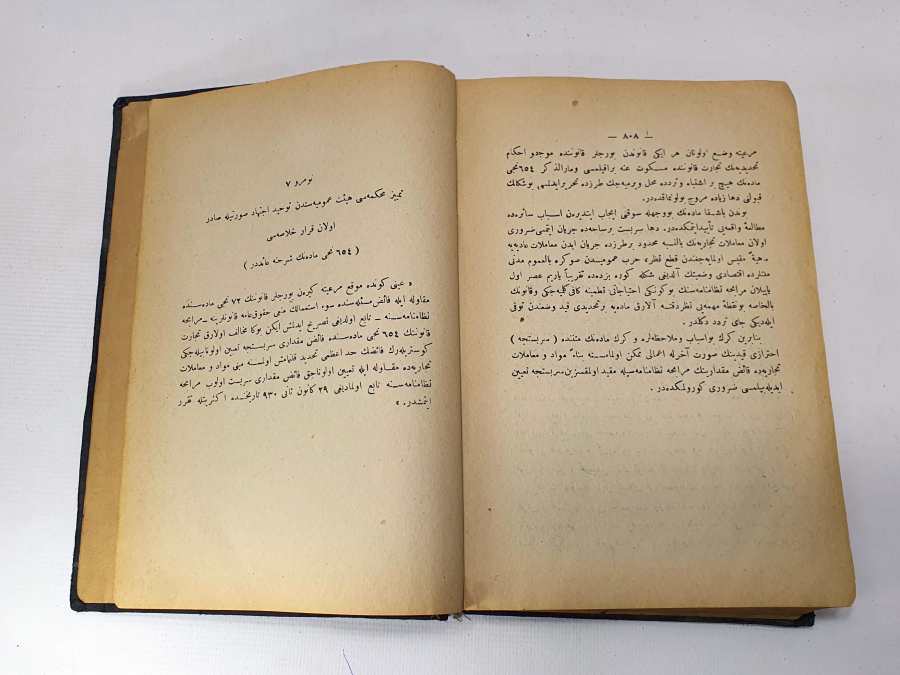 — ٨٠٨ —
مرعیته وضع اولونان هر ایکی قانوندن بورجلر قانوننده موجود احکام
تحدیدیه‌نك تجارت قانوننده مسكوت عنه براقیلمسی ومارالذكر ٦٥٤ نجی
ماده‌نك هیچ بر اشتباه وتردده محل ویرمیه‌جك طرزده تحریر ایدلسی بوشكلك
قبولنی دها زیاده مروج بولونماقده‌در.
بوندن باشقا ماده‌نك بووجهله سوقنی ایجاب ایتدیره‌ن اسباب سائره‌ده
مطالعهٔ واقعه‌یی تأییدایتمكده‌در. دها سربست برساحه‌ده جریان ایتمسی ضروری
اولان معاملات تجاریه‌نك بالنسبه محدود برطرزده جریان ایدن معاملات عادیه‌یه
مقیس اولمایه‌جغندن قطع نظر، حرب عمومیدن صوكره بالعموم مدنی
ملتلرده اقتصادی وضعیتك آلدیغی شكله كوره بزده‌ده تقریباً یاریم عصر اول
یاپیلان مرابحه نظامنامه‌سنك بوكونكی احتیاجاتی تطمینه كافی كلمیه‌جكی وقانونك
بالخاصه بونقطهٔ مهمه‌یی نظردقته آلارق ماده‌یه برتحدیدی قید وضعندن توقی
ایله‌دیكی جای تردد دكلدر.
بناءً علیه كرك بواسباب وملاحظه‌لره و كرك ماده‌نك متننده ( سربستجه )
احترازی قیدینك صورت آخرله اعمالی ممكن اولمامسنه بناءً مواد و معاملات
تجاریه‌ده فائض مقدارینك مرابحه نظامنامه‌سیله مقید اولمقسزین سربستجه تعیین
ایدیله‌بیلمسی ضروری كورولمكده‌در.
نومرو ٧
تمییز محكمه‌سی هیئت عمومیه‌سندن توحید اجتهاد صورتیله صادر
اولان قرار خلاصه‌سی
( ٦٥٤ نجی ماده‌نك شرحنه عائددر )
« عینی كونده موقع مرعیته كیره‌ن بورجلر قانوننك ٧٢ نجی ماده‌سنده
مقاوله ایله فائض مسئله‌سنده سوء استعمالك منعی حقوق عامه قانونلرینه ـ مرابحه
نظامنامه‌سنه ـ تابع اولدیغی تصریح ایدلمش ایكن بوكا مخالف اولارق تجارت
قانوننك ٦٥٤ نجی ماده‌سنده فائض مقداری سربستجه تعیین اولونابیله‌جكی
كوستریله‌رك فائضك حد اعظمی تحدید قلنمامش اولمسنه مبنی مواد و معاملات
تجاریه‌ده مقاوله ایله تعیین اولوناجق فائض مقداری سربست اولوب مرابحه
نظامنامه‌سنه تابع اولمادیغی ٢٩ كانون ثانی ٩٣٠ تاریخنده اكثریتله تقرر
ایتمشدر. »